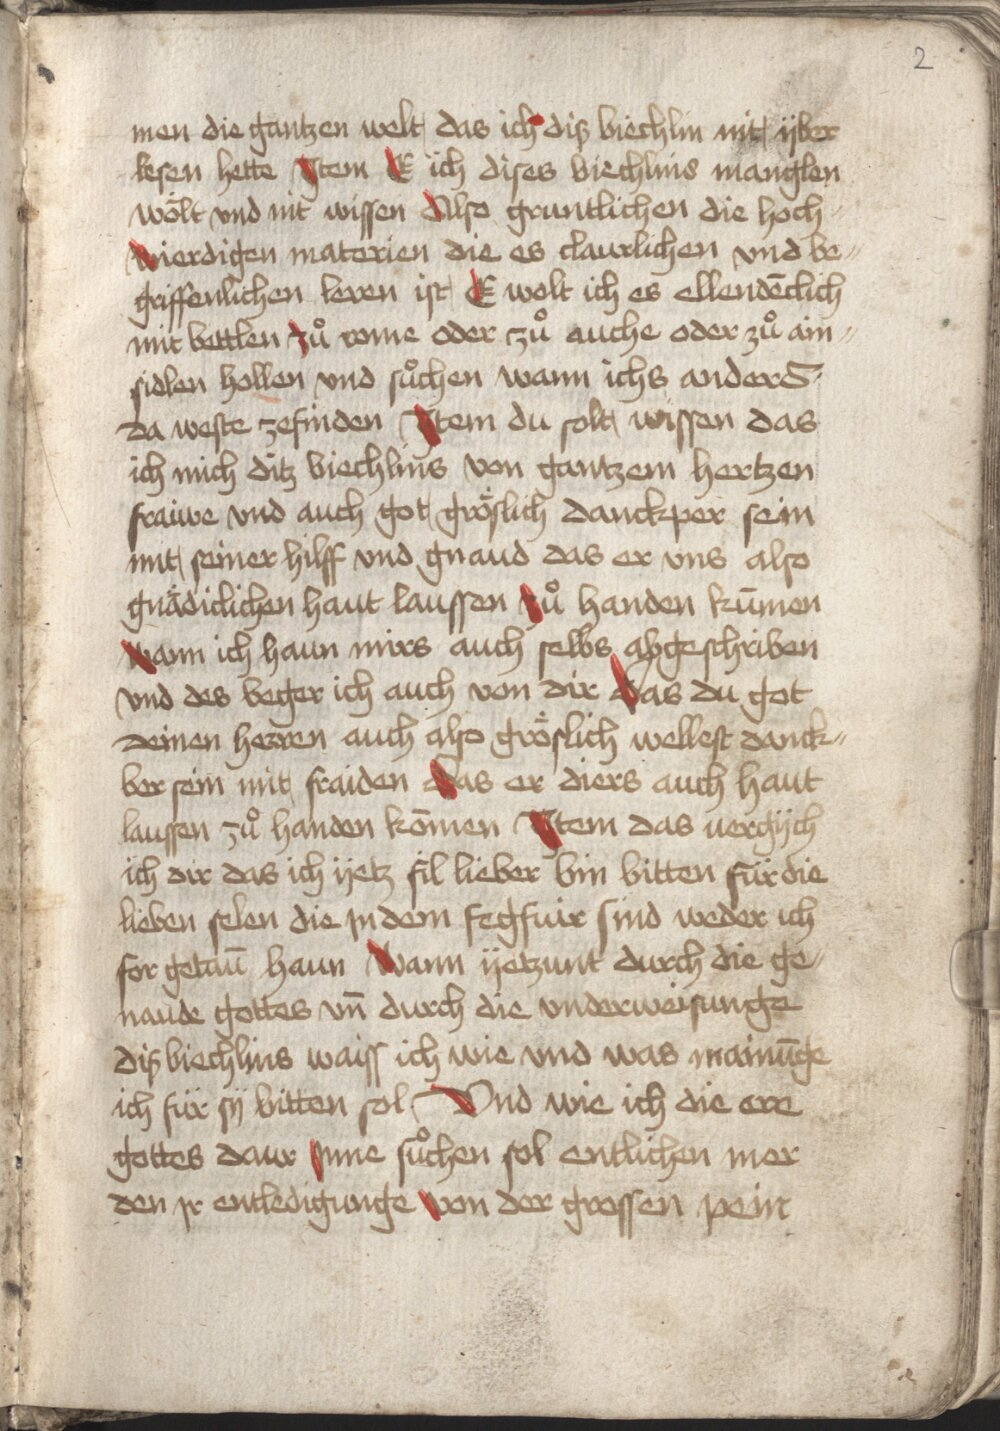 2
men die gantzen welt das ich diß biechlin nit ÿber
lesen hette Item E ich dises biechlins manglen
wölt vnd nit wissen Also gruntlichen die hoch⸗
wierdigen materien die es claurlichen vnd be⸗
griffenlichen leren ist E wolt ich es ellendēclich
mit bettlen zů rome oder zů auche oder zů ain⸗
sidlen hollen vnd sůchen wann ichs anders⸗
da weste zefinden Item du solt wissen das
ich mich ditz biechlins von gantzem hertzen
fraiwe vnd auch got gröslich danckper sein
mit seiner hilff vnd gnaud das er vns also
gnädiclichen haut laussen zů handen kūmen
wann ich haun mirs auch selbs abgeschriben
vnd des beger ich auch von dir das du got
deinen herren auch also gröslich wellest danck⸗
ber sein mit fraiden das er diers auch haut
laussen zů handen kōmen Item das uergÿch
ich dir das ich ÿetz fil lieber bin bitten für die
lieben selen die jn dem fegfuir sind weder ich
for getaū haun Wann ÿetzunt durch die ge⸗
naude gottes vn̄ durch die vnderweisunge
diß biechlins waiss ich wie vnd was mainūge
ich für sÿ bitten sol Vnd wie ich die ere
gottes daur jnne sůchen sol entlichen mer
den jr entledigunge von der grossen pein